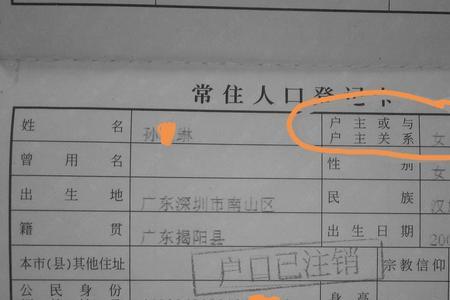 常住人口登记卡
姓 名 孙 琳 户主或与
户主关系 女
曾用名 性别 女
出生地 广东深圳市南山区 民族 汉
籍贯 广东揭阳县 出生日期 200
本市(县)其他住址 宗教信仰
户口已注销
公民身份 身高